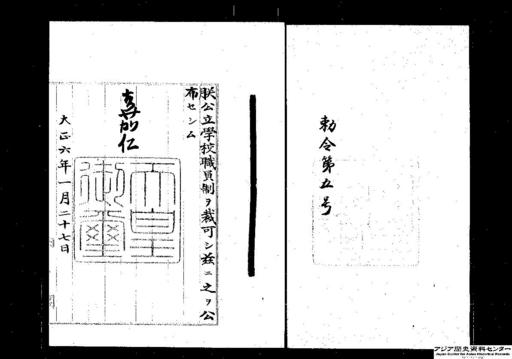 勅令第五号
朕公立學校職員制ヲ裁可シ茲ニ之ヲ公
布セシム
嘉仁
天皇
御璽
大正六年一月二十七日
アジア歴史資料センター
Japan Center for Asian Historical Records